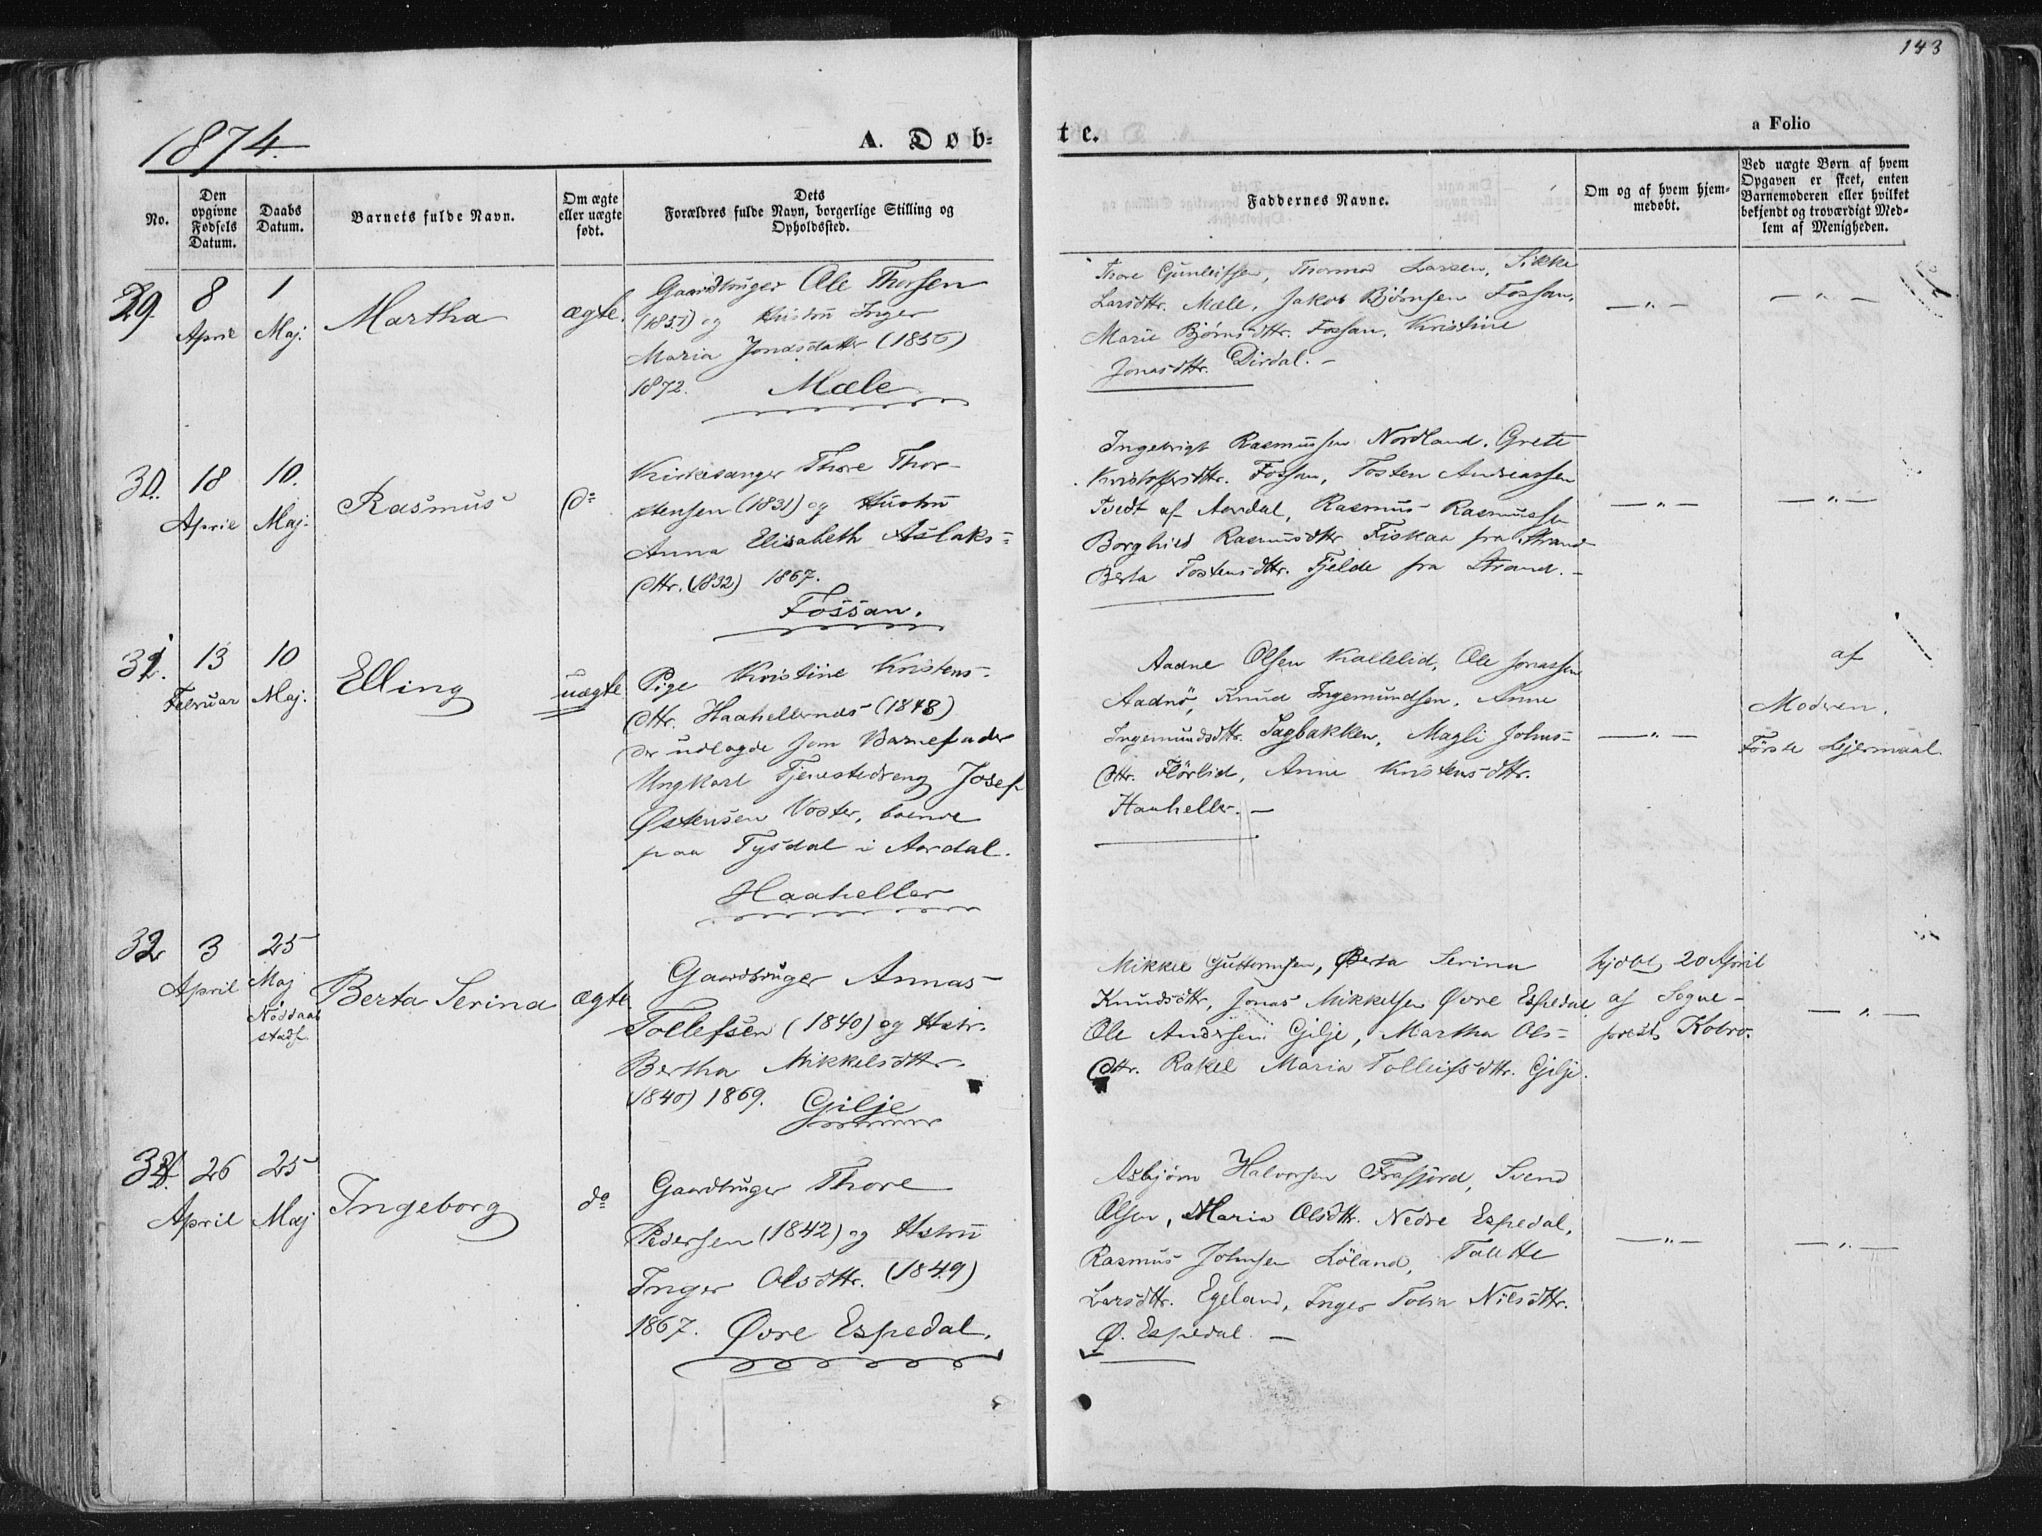 143
1874.
A. Døb-
te.
a Folio
No.
Den
opgivne
Fødsels
Datum.
Daabs
Datum.
Barnets fulde Navn.
Om ægte
eller uægte
født.
Dets
Forældres fulde Navn, borgerlige Stilling og
Opholdssted.
Faddernes Navne.
Om og af hvem hjem-
medøbt.
Ved uægte Børn af hvem
Opgaven er skeet, enten
Barnemoderen eller hvilket
bekjendt og troværdigt Med-
lem af Menigheden.
29.
8
April
1
Maj.
Martha
ægte.
Gaardbruger Ole Thorsen
(1851) og Hustru Inger
Maria Jonasdatter (1850)
1872. Mæle
Thore Gunleifsen, Thormod Larsen, Sikke
Larsdttr. Mæle, Jakob Bjørnsen Fossan,
Marie Bjørnsdttr. Fossan, Kristine
Jonasdttr. Dirdal. -
— „ —
— „ —
30.
18
April
10.
Maj.
Rasmus
do
Kirkesanger Thore Thor-
stensen (1831) og Hustru
Anna Elisabeth Aslaks-
dttr. (1832) 1867.
Fossan.
Ingebrigt Rasmussen Nordland, Grete
Kristoffersdttr. Fossan, Tosten Andreassen
Tvedt af Aardal, Rasmus Rasmussen
Borghild Rasmusdttr Fiskaa fra Strand
Berta Tostensdttr. Fjelde fra Strand. -
— „ —
— „ —
31.
13
Februar
10
Maj.
Elling
uægte
Pige Kristine Kristens-
dttr. Haahellernes (1848)
der udlagde som Barnefader
Ungkarl Tjenestedreng Josef
Østensen Voster, boende
paa Tysdal i Aardal.
Haaheller
Aadne Olsen Kallelid, Ole Jonassen
Aadnö, Knud Ingemundsen, Anne
Ingemundsdttr. Sagbakken, Magli Johns-
dttr. Flörlid, Anne Kristensdttr.
Haaheller. —
— „ —
af
Modren.
Første Lejermaal.
32
3
April
25
Maj
Nöddaab
stadf.
Berta Serina
ægte
Gaardbruger Annas
Tollefsen (1840) og Hstr.
Bertha Mikkelsdttr.
(1840) 1869. Gilje
Mikkel Guttormsen, Berta Serina
Knudsdttr, Jonas Mikkelsen Øvre Espedal
Ole Andersen Gilje, Martha Ols-
dttr. Rakel Maria Tolleifsdttr. Gilje.
hjdbt, 20 April
af Sogne-
prest Kobro.
— „ —
26
April
25
Maj
Ingeborg
do
Gaardbruger Thore
Pedersen (1842) og Hstru
Inger Olsdttr. (1849)
1867. Øvre Espedal.
Asbjørn Halvorsen Frafjord, Svend
Olsen, Maria Olsdttr. Nedre Espedal,
Rasmus Johnsen Løland, Talette
Larsdttr. Egeland, Inger Tobia Nilsdttr.
Ø. Espedal. —
— „ —
— „ —